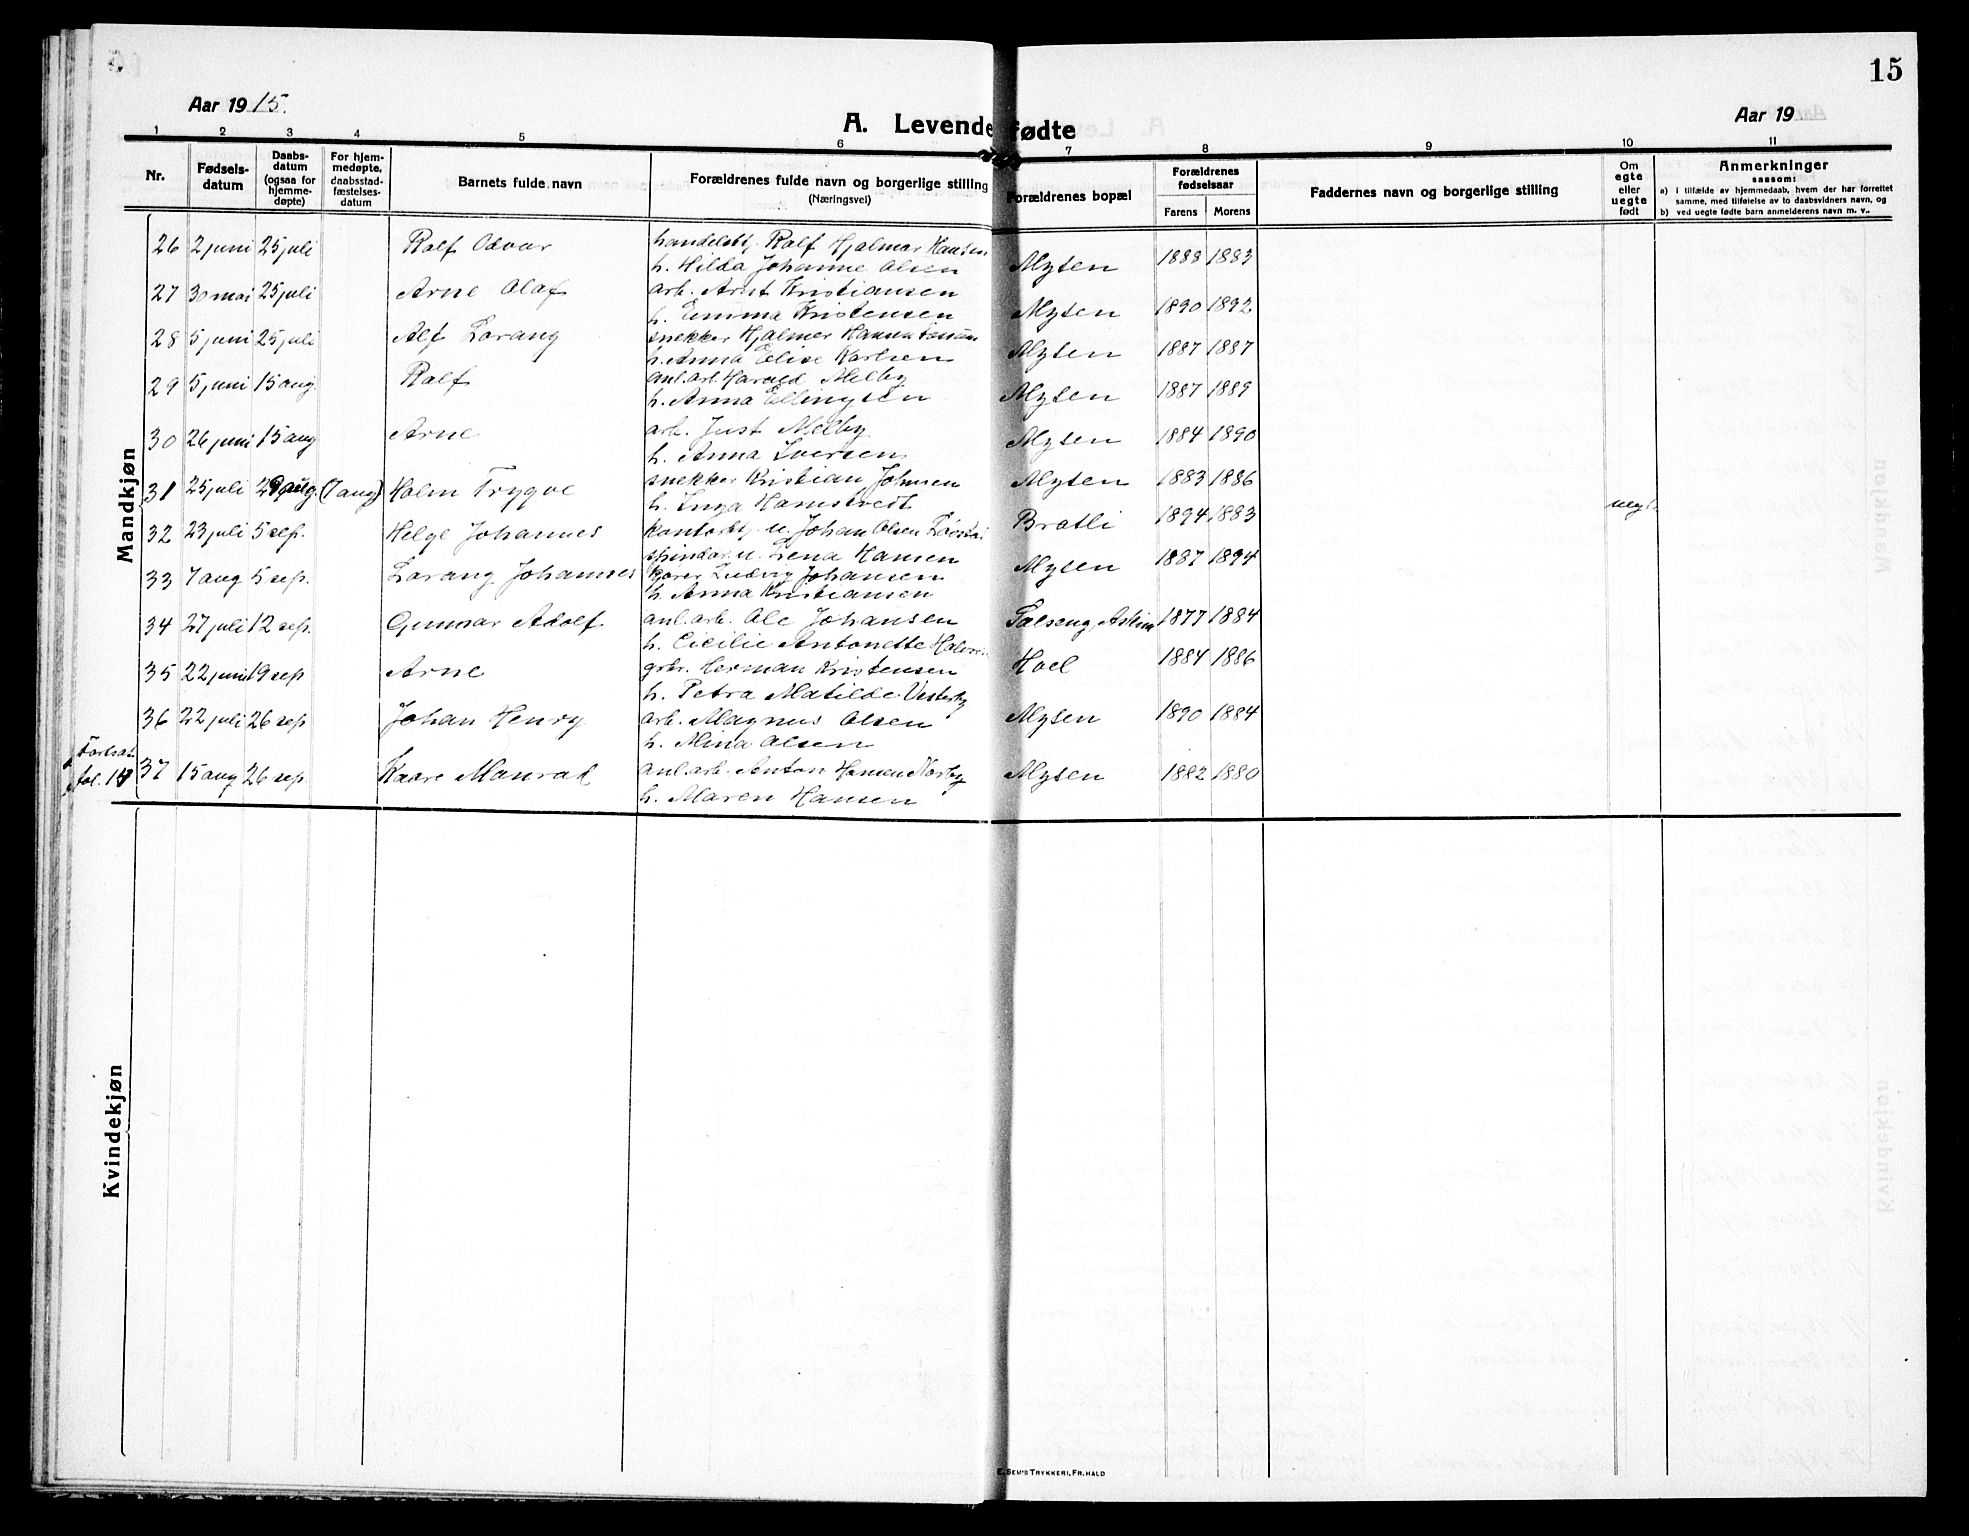 15
Aar 1915.
A. Levende fødte
Aar 19
1 2 3 4 5 6 7 8 9 10 11
Nr.
Fødsels-
datum
Daabs-
datum
(ogsaa for
hjemme-
døpte)
For hjem-
medøpte,
daabsstad-
fæstelses-
datum
Barnets fulde navn
Forældrenes fulde navn og borgerlige stilling
(Næringsvei)
Forældrenes bopæl
Forældrenes
fødselsaar
Farens Morens
Faddernes navn og borgerlige stilling
Om
egte
eller
uegte
født
Anmerkninger
saasom:
a) i tilfælde av hjemmedaab, hvem der har forrettet
samme, med tilføielse av to daabsvidners navn, og
b) ved uegte fødte barn anmelderens navn m. v..
Mandkjøn
26 2 juni 25 juli Rolf Odvar handelsbtj. Rolf Hjalmar Hansen Mysen 1888 1883
h. Hilda Johanne Olsen
27 30 mai 25 juli Arne Olaf arb. Arnt Kristiansen Mysen 1890 1892
h. Emma Kristensen
28 5 juni 25 juli Alf Lorang snekker Hjalmer Hansen Mysen 1887 1887
h. Anna Elise Karlsen
29 5 juni 15 aug. Rolf anl.arb. Harald Melby Mysen 1887 1889
h. Anna Ellingsen
30 26 juni 15 aug Arne arb. Just Melby Mysen 1884 1890
h. Anna Iversen
31 25 juli 29 aug. (7 aug) Holm Trygve snekker Kristian Johnsen Mysen 1883 1886
h. Inga Hamstvedt
32 23 juli 5 sep. Helge Johannes kontorbtj. u. Johan Olsen Bratli 1894 1883 uegte
spinder. u. Lena Hansen
33 7 aug 5 sep. Lorang Johannes kjører Ludvig Johansen Mysen 1887 1894
h. Anna Kristiansen
34 27 juli 12 sep. Gunnar Adolf anl.arb. Ole Johansen Askim 1877 1884
h. Cicilie Antonette
35 22 juni 19 sep Arne grbr. Herman Kristensen Hoel 1884 1886
h. Petra Matilde Vesterby
36 22 juli 26 sep Johan Henry arb. Magnus Olsen Mysen 1890 1884
h. Mina Olsen
Fortsat
fol. 37 15 aug 26 sep. Kaare Manrad anl.arb. Anton Hansen Norby Mysen 1882 1880
h. Maren Hansen
Kvindekjøn
E. SEM'S TRYKKERI, FR.HALD